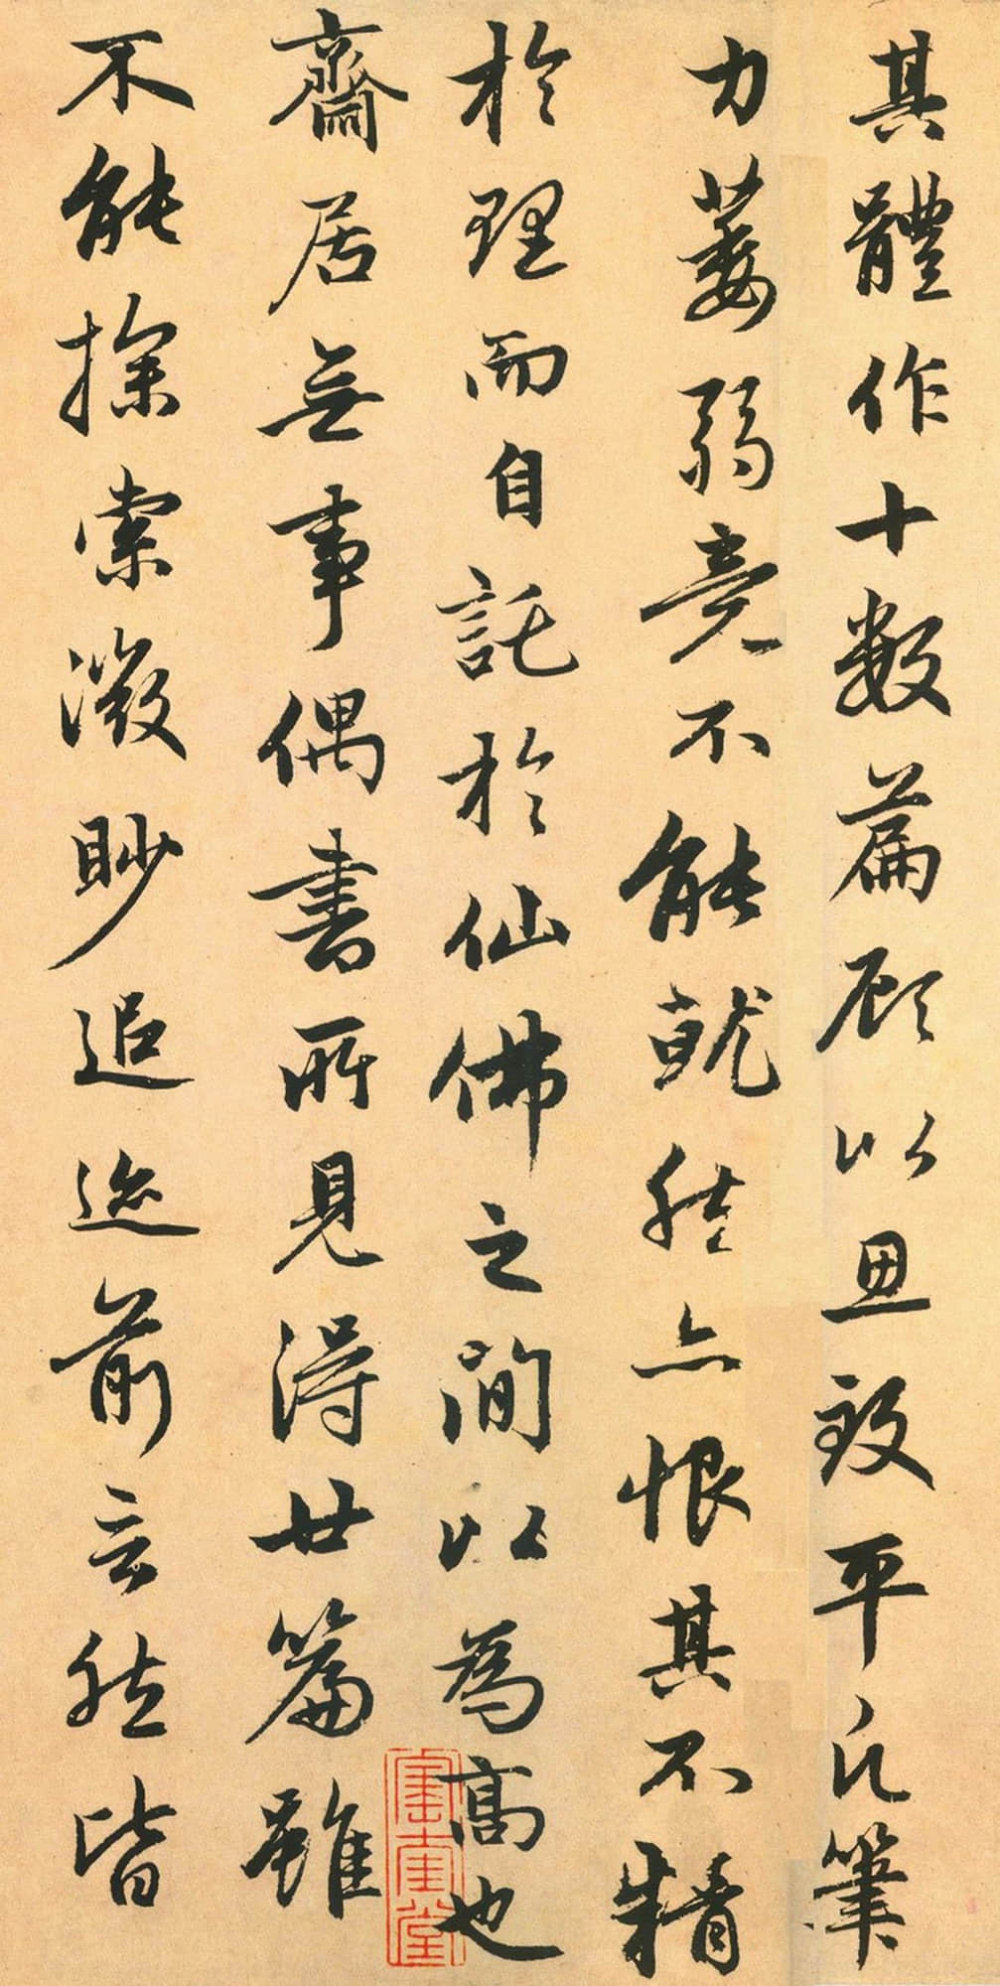 其體作十數篇顧以思致平凡筆
力萎弱竟不能就然亦恨其不精
於理而自託於仙佛之間以為高也
齋居無事偶書所見得廿篇雖
不能探索微眇追迹前言然皆